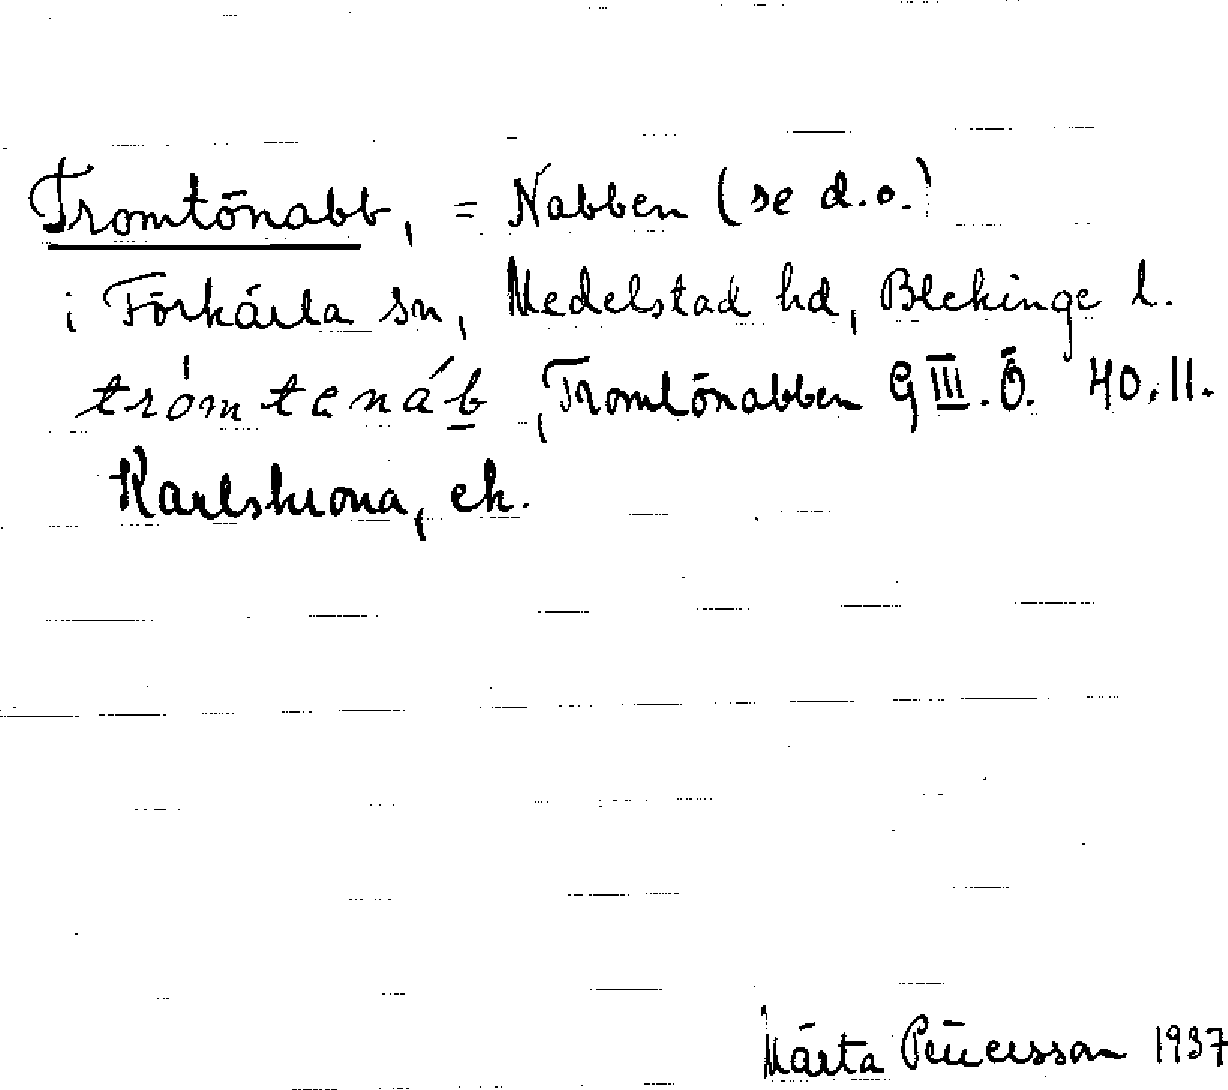 Tromtönabb, = Nabben (se d.o.)
i Förkärla sn, Medelstad hd, Blekinge l.
tròmtenáb, Tromtönabben G III. Ö. 40. 11.
Karlskrona, ek.
Märta Pettersson 1937